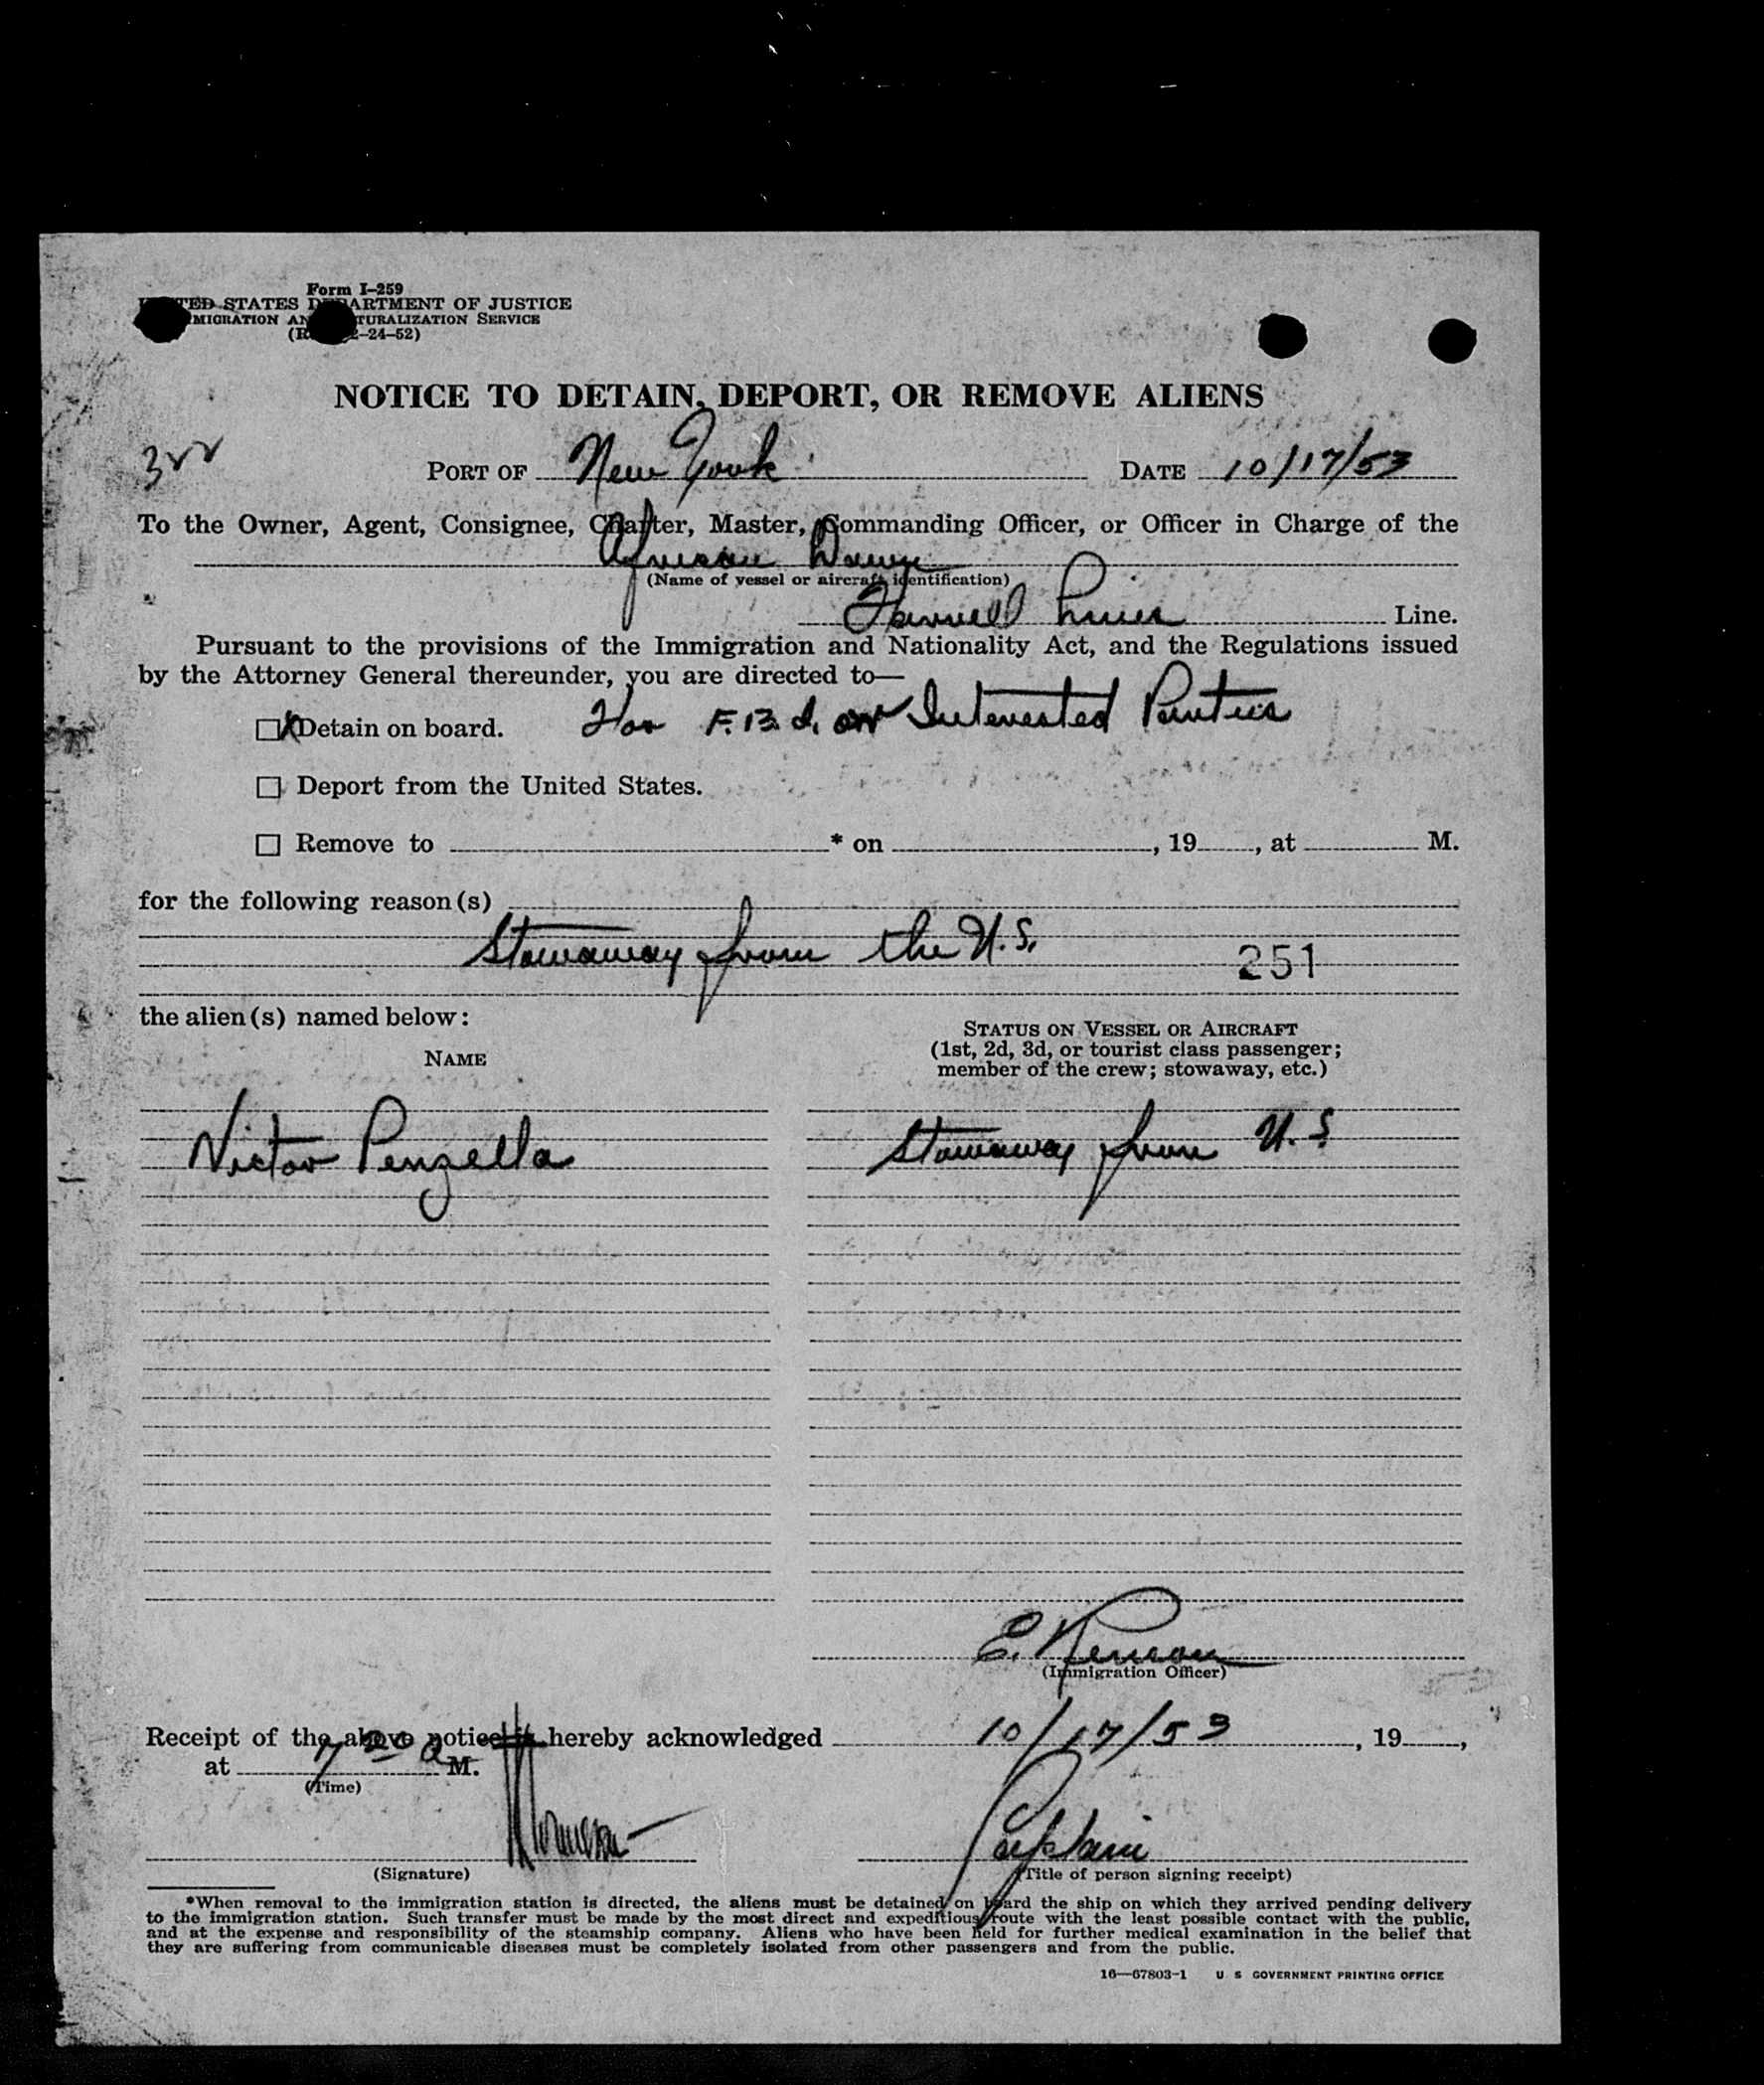 Form I-259
UNITED STATES DEPARTMENT OF JUSTICE
IMMIGRATION AND NATURALIZATION SERVICE
(R 2-24-52)
NOTICE TO DETAIN, DEPORT, OR REMOVE ALIENS
322
PORT OF New York DATE 10/17/53
To the Owner, Agent, Consignee, Charter, Master, Commanding Officer, or Officer in Charge of the
African Dawn
(Name of vessel or aircraft identification)
Farrell Lines Line.
Pursuant to the provisions of the Immigration and Nationality Act, and the Regulations issued
by the Attorney General thereunder, you are directed to—
☒ Detain on board. For F.B.I. or Interested Parties
☐ Deport from the United States.
☐ Remove to * on , 19 , at M.
for the following reason(s)
Stowaway from the U.S.
251
the alien(s) named below:
NAME
STATUS ON VESSEL OR AIRCRAFT
(1st, 2d, 3d, or tourist class passenger;
member of the crew; stowaway, etc.)
Victor Penzella Stowaway from U.S.
E.
(Immigration Officer)
Receipt of the above notice is hereby acknowledged 10/17/53 , 19 ,
at 7 20 a M.
(Time)
Captain
(Signature) (Title of person signing receipt)
*When removal to the immigration station is directed, the aliens must be detained on board the ship on which they arrived pending delivery
to the immigration station. Such transfer must be made by the most direct and expeditious route with the least possible contact with the public,
and at the expense and responsibility of the steamship company. Aliens who have been held for further medical examination in the belief that
they are suffering from communicable diseases must be completely isolated from other passengers and from the public.
16—67803-1 U S GOVERNMENT PRINTING OFFICE